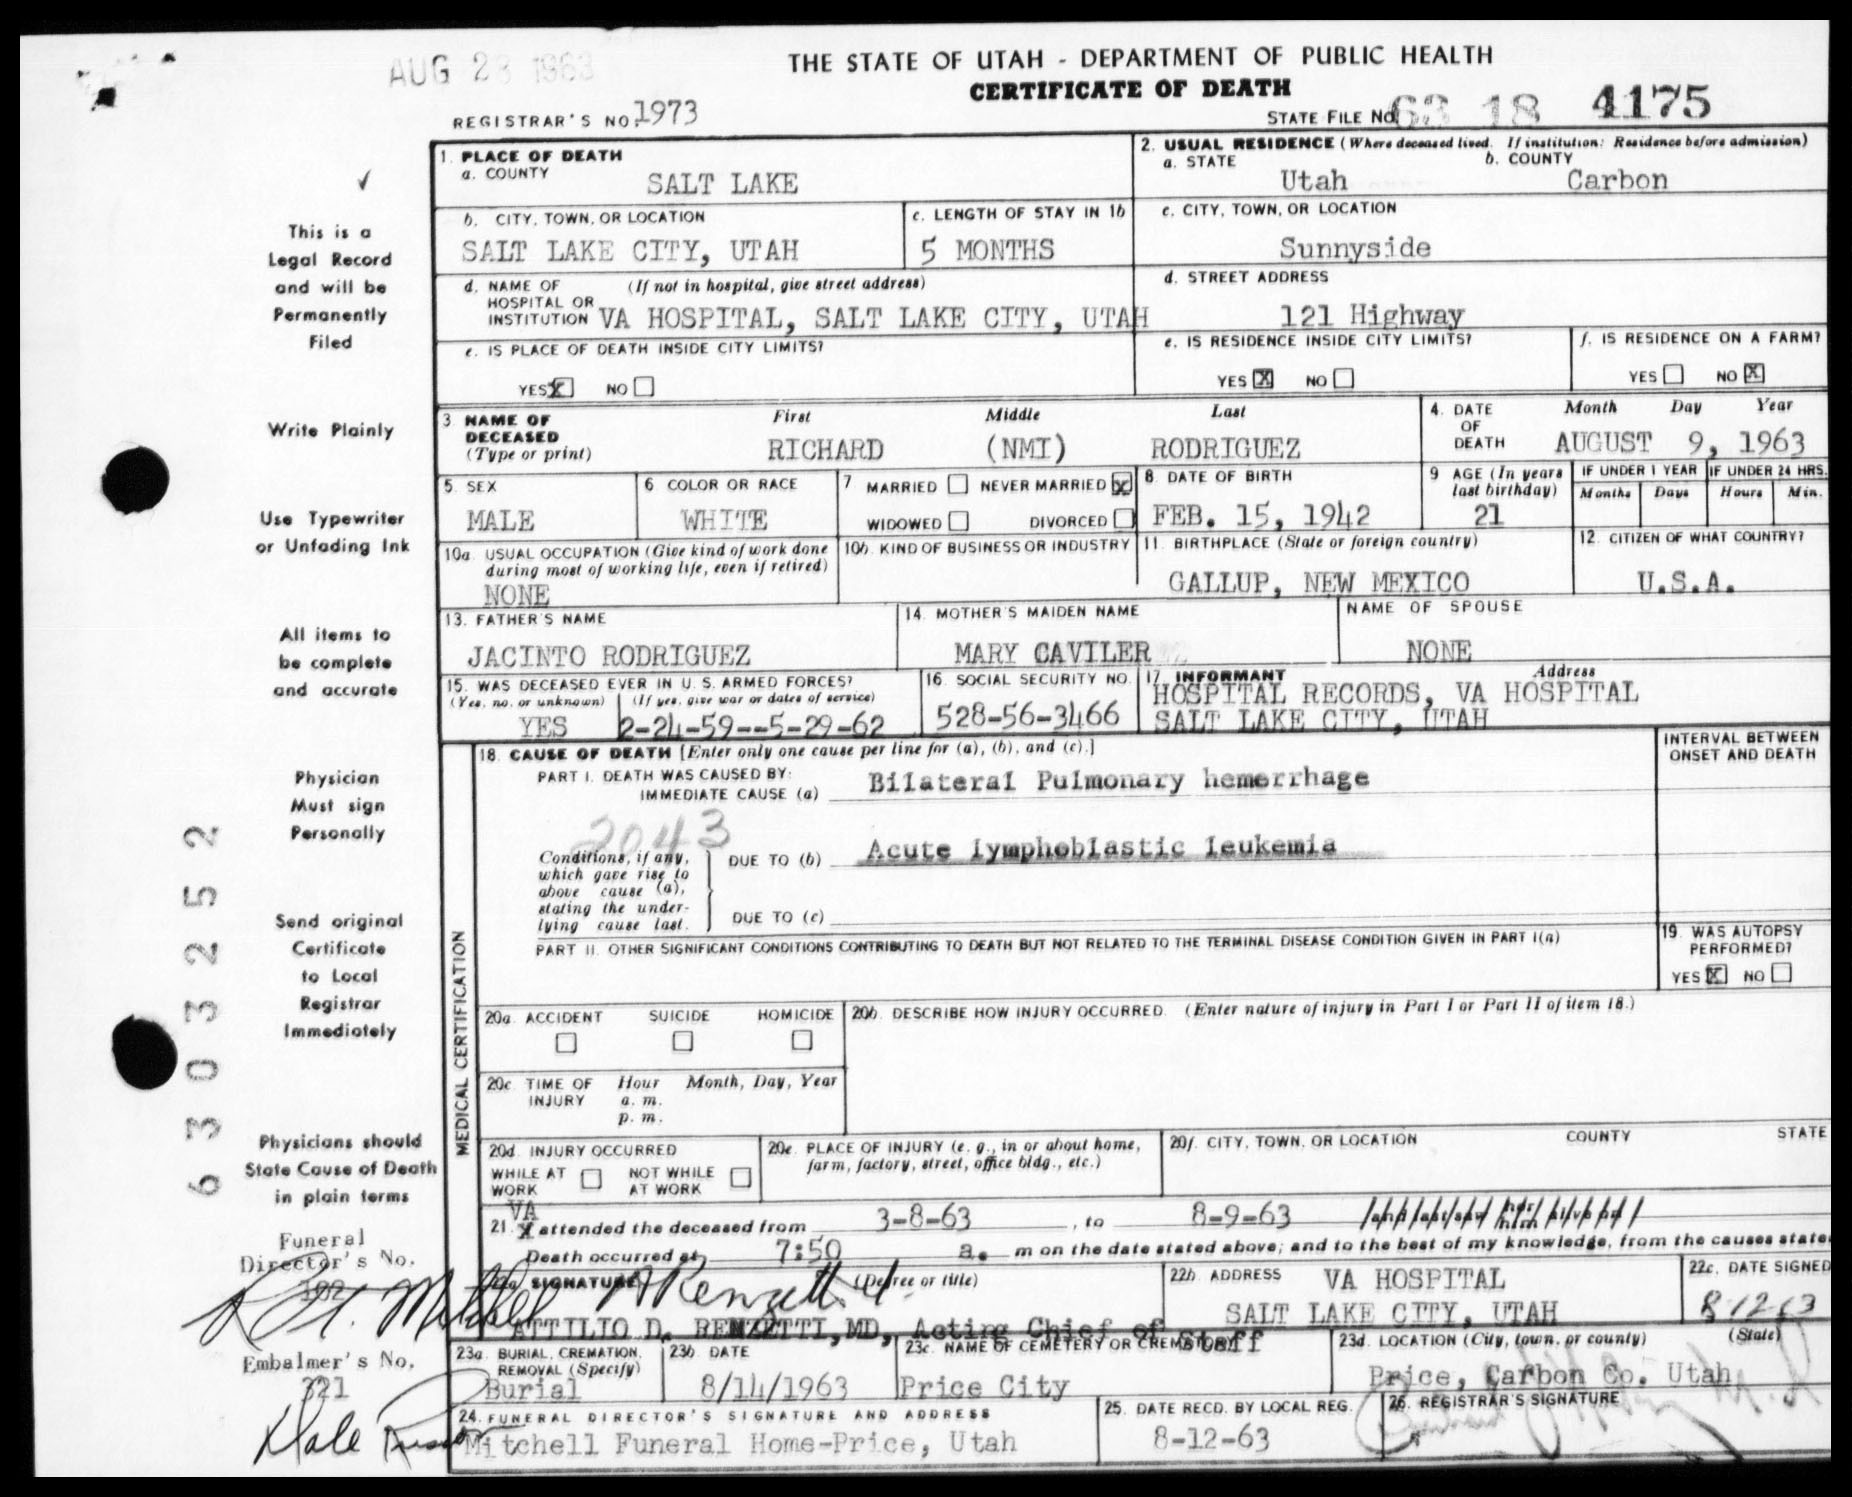 AUG 23 1963
THE STATE OF UTAH - DEPARTMENT OF PUBLIC HEALTH
CERTIFICATE OF DEATH
REGISTRAR'S NO. 1973
STATE FILE NO. 63 18 4175
1. PLACE OF DEATH
a. COUNTY
SALT LAKE
2. USUAL RESIDENCE (Where deceased lived. If institution: Residence before admission)
a. STATE b. COUNTY
Utah Carbon
b. CITY, TOWN, OR LOCATION
SALT LAKE CITY, UTAH
c. LENGTH OF STAY IN 1b
5 MONTHS
c. CITY, TOWN, OR LOCATION
Sunnyside
d. NAME OF (If not in hospital, give street address)
HOSPITAL OR
INSTITUTION VA HOSPITAL, SALT LAKE CITY, UTAH
d. STREET ADDRESS
121 Highway
e. IS PLACE OF DEATH INSIDE CITY LIMITS?
YES X NO
e. IS RESIDENCE INSIDE CITY LIMITS?
YES X NO
f. IS RESIDENCE ON A FARM?
YES NO X
3 NAME OF DECEASED (Type or print)
First Middle Last
RICHARD (NMI) RODRIGUEZ
4. DATE OF DEATH
Month Day Year
AUGUST 9, 1963
5. SEX
MALE
6 COLOR OR RACE
WHITE
7 MARRIED NEVER MARRIED X
WIDOWED DIVORCED
8. DATE OF BIRTH
FEB. 15, 1942
9 AGE (In years last birthday)
21
IF UNDER 1 YEAR
Months Days
IF UNDER 24 HRS.
Hours Min.
10a. USUAL OCCUPATION (Give kind of work done
during most of working life, even if retired)
NONE
10b. KIND OF BUSINESS OR INDUSTRY
11. BIRTHPLACE (State or foreign country)
GALLUP, NEW MEXICO
12. CITIZEN OF WHAT COUNTRY?
U.S.A.
13. FATHER'S NAME
JACINTO RODRIGUEZ
14. MOTHER'S MAIDEN NAME
MARY CAVILER
NAME OF SPOUSE
NONE
15. WAS DECEASED EVER IN U. S. ARMED FORCES?
(Yes, no, or unknown) (If yes, give war or dates of service)
YES 2-24-59--5-29-62
16. SOCIAL SECURITY NO.
528-56-3466
17. INFORMANT Address
HOSPITAL RECORDS, VA HOSPITAL
SALT LAKE CITY, UTAH
MEDICAL CERTIFICATION
18. CAUSE OF DEATH [Enter only one cause per line for (a), (b), and (c).]
PART I. DEATH WAS CAUSED BY:
IMMEDIATE CAUSE (a) Bilateral Pulmonary hemorrhage
INTERVAL BETWEEN
ONSET AND DEATH
2043
Conditions, if any,
which gave rise to
above cause (a),
stating the under-
lying cause last.
DUE TO (b) Acute lymphoblastic leukemia
DUE TO (c)
PART II. OTHER SIGNIFICANT CONDITIONS CONTRIBUTING TO DEATH BUT NOT RELATED TO THE TERMINAL DISEASE CONDITION GIVEN IN PART I(a)
19. WAS AUTOPSY
PERFORMED?
YES X NO
20a. ACCIDENT SUICIDE HOMICIDE
20b. DESCRIBE HOW INJURY OCCURRED. (Enter nature of injury in Part I or Part II of item 18.)
20c. TIME OF INJURY
Hour Month, Day, Year
a. m.
p. m.
20d. INJURY OCCURRED
WHILE AT WORK NOT WHILE AT WORK
20e. PLACE OF INJURY (e. g., in or about home,
farm, factory, street, office bldg., etc.)
20f. CITY, TOWN, OR LOCATION COUNTY STATE
VA
21. I attended the deceased from 3-8-63, to 8-9-63
Death occurred at 7:50 a. m on the date stated above; and to the best of my knowledge, from the causes state
22a. SIGNATURE (Degree or title)
ATTILIO D. RENZETTI, MD, Acting Chief of Staff
22b. ADDRESS VA HOSPITAL
SALT LAKE CITY, UTAH
22c. DATE SIGNED
8 12 63
23a. BURIAL, CREMATION,
REMOVAL (Specify)
Burial
23b. DATE
8/14/1963
23c. NAME OF CEMETERY OR CREMATORY
Price City
23d. LOCATION (City, town, or county) (State)
Price, Carbon Co. Utah
24. FUNERAL DIRECTOR'S SIGNATURE AND ADDRESS
Mitchell Funeral Home-Price, Utah
25. DATE RECD. BY LOCAL REG.
8-12-63
26. REGISTRAR'S SIGNATURE
This is a
Legal Record
and will be
Permanently
Filed
Write Plainly
Use Typewriter
or Unfading Ink
All items to
be complete
and accurate
Physician
Must sign
Personally
Send original
Certificate
to Local
Registrar
Immediately
Physicians should
State Cause of Death
in plain terms
Funeral
Director's No.
Mitchell
Embalmer's No.
321
Dale
6303252